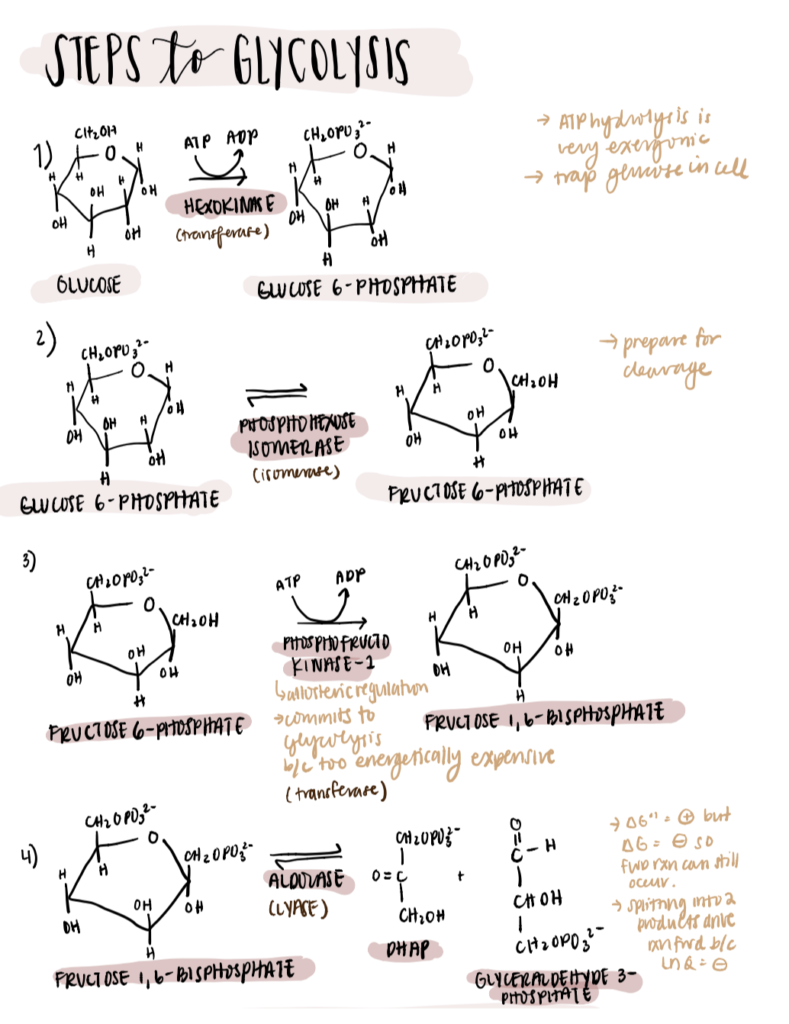 STEPS to GLYCOLYSIS
1)
CH₂OH
O
H
H
H
OH
H
OH
OH
OH
H
GLUCOSE
ATP ADP
HEXOKINASE
(transferase)
CH₂OPO₃²⁻
O
H
H
H
OH
H
OH
OH
OH
H
GLUCOSE 6-PHOSPHATE
→ ATP hydrolysis is
very exergonic
→ trap glucose in cell
2)
CH₂OPO₃²⁻
O
H
H
H
OH
H
OH
OH
OH
H
GLUCOSE 6-PHOSPHATE
PHOSPHOHEXOSE
ISOMERASE
(isomerase)
CH₂OPO₃²⁻
O
CH₂OH
H
H
OH
OH
OH
H
FRUCTOSE 6-PHOSPHATE
→ prepare for
cleavage
3)
CH₂OPO₃²⁻
O
CH₂OH
H
H
OH
OH
OH
H
FRUCTOSE 6-PHOSPHATE
ATP ADP
PHOSPHOFRUCTO
KINASE-1
↳ allosteric regulation
→ commits to
glycolysis
b/c too energetically expensive
(transferase)
CH₂OPO₃²⁻
O
CH₂OPO₃²⁻
H
H
OH
OH
OH
H
FRUCTOSE 1,6-BISPHOSPHATE
4)
CH₂OPO₃²⁻
O
CH₂OPO₃²⁻
H
H
OH
OH
OH
H
FRUCTOSE 1,6-BISPHOSPHATE
ALDOLASE
(LYASE)
CH₂OPO₃²⁻
O=C
CH₂OH
DHAP
+
O
C-H
CHOH
CH₂OPO₃²⁻
GLYCERALDEHYDE 3-
PHOSPHATE
→ ΔG°' = ⊕ but
ΔG = ⊖ so
fwd rxn can still
occur.
→ splitting into 2
products drive
rxn fwd b/c
ln Q = ⊖